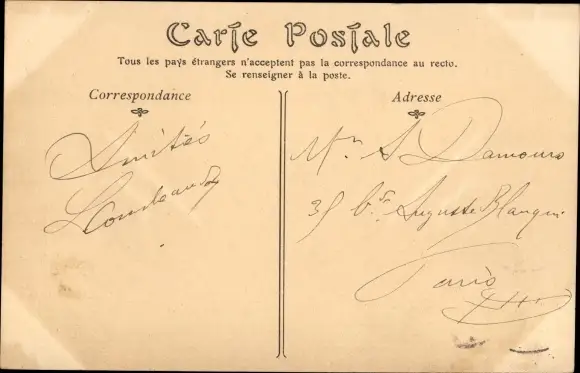 Carte Postale
Tous les pays étrangers n'acceptent pas la correspondance au recto.
Se renseigner à la poste.
Correspondance
Amitiés
Adresse
Mr S Damours
35 Bd Auguste Blanqui
Paris
XIII